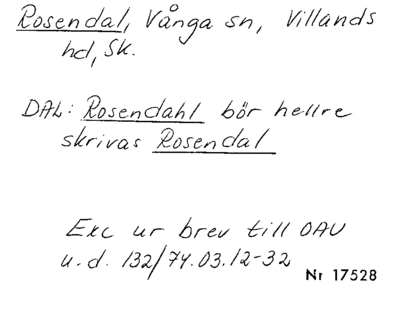 Rosendal, Vånga sn, Villands
hd, Sk.
DAL: Rosendahl bör hellre
skrivas Rosendal
Exc ur brev till OAU
u.d. 132/74.03.12-32
Nr 17528